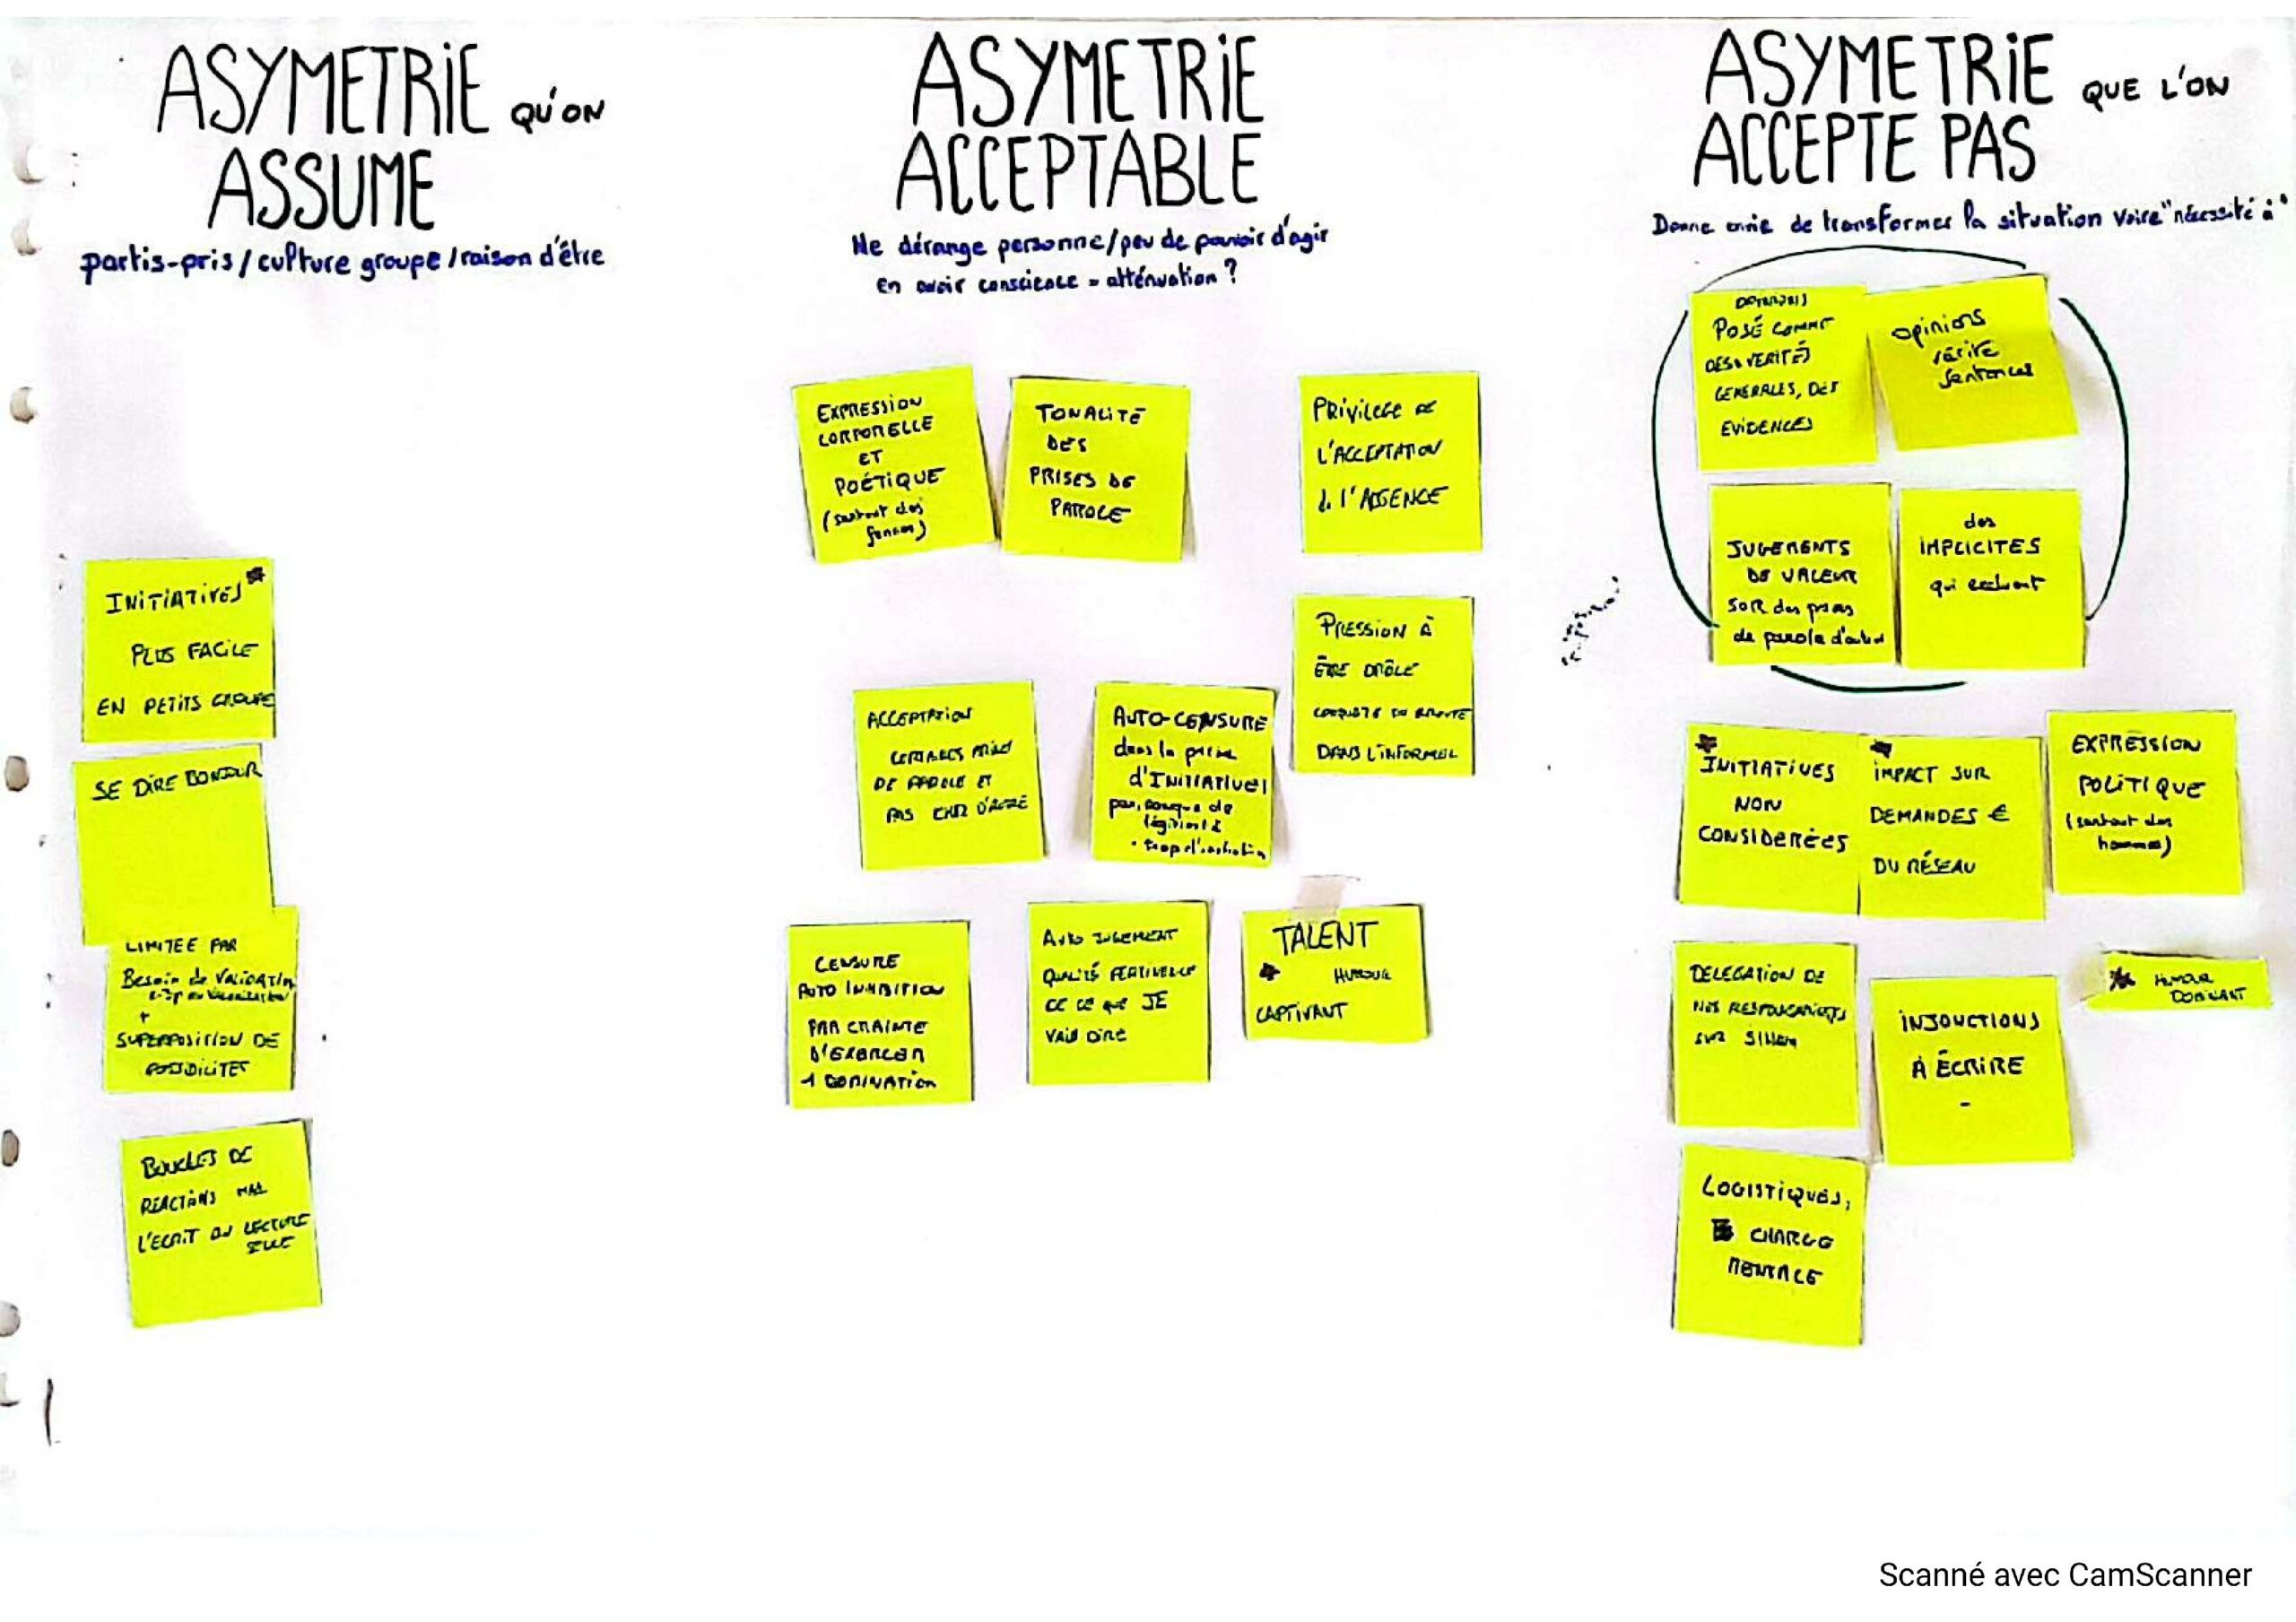 ASYMETRIE QU'ON
ASSUME
partis-pris / culture groupe / raison d'être
INITIATIVES
PLUS FACILE
EN PETITS GROUPE
SE DIRE BONJOUR
LIMITEE PAR
Besoin de VALIDATION
+
SUPERPOSITION DE
POSSIBILITES
BOUCLES DE
REACTIONS
L'ECRIT OU LECTURE
ASYMETRIE
ACCEPTABLE
Ne dérange personne/peu de pouvoir d'agir
En avoir conscience = atténuation ?
EXPRESSION
CORPORELLE
ET
POÉTIQUE
(surtout des
femmes)
TONALITÉ
DES
PRISES DE
PAROLE
PRIVILEGE DE
L'ACCEPTATION
de l'ABSENCE
PRESSION À
ÊTRE DRÔLE
DANS L'INFORMEL
ACCEPTATION
CERTAINES PRISES
DE PAROLE ET
PAS CHEZ D'AUTRE
AUTO-CENSURE
dans la prise
d'INITIATIVES
par manque de
légitimité
CENSURE
AUTO INHIBITION
PAR CRAINTE
D'EXERCER
1 DOMINATION
AUTO JUGEMENT
QUALITÉ PERTINENCE
DE CE QUE JE
VAIS DIRE
TALENT
HUMOUR
CAPTIVANT
ASYMETRIE QUE L'ON
ACCEPTE PAS
Donne envie de transformer la situation voire "nécessité à"
POSÉ COMME
DES VERITÉS
GENERALES, DES
EVIDENCES
opinions
vérité
sentences
JUGEMENTS
DE VALEUR
SUR des prises
de parole d'autrui
des
IMPLICITES
qui excluent
INITIATIVES
NON
CONSIDEREES
IMPACT SUR
DEMANDES €
DU RÉSEAU
EXPRESSION
POLITIQUE
(surtout des
hommes)
DELEGATION DE
NOS RESPONSABILITÉS
SUR
INJONCTIONS
À ÉCRIRE
-
HUMOUR
DOMINANT
LOGISTIQUES,
CHARGE
MENTALE
Scanné avec CamScanner